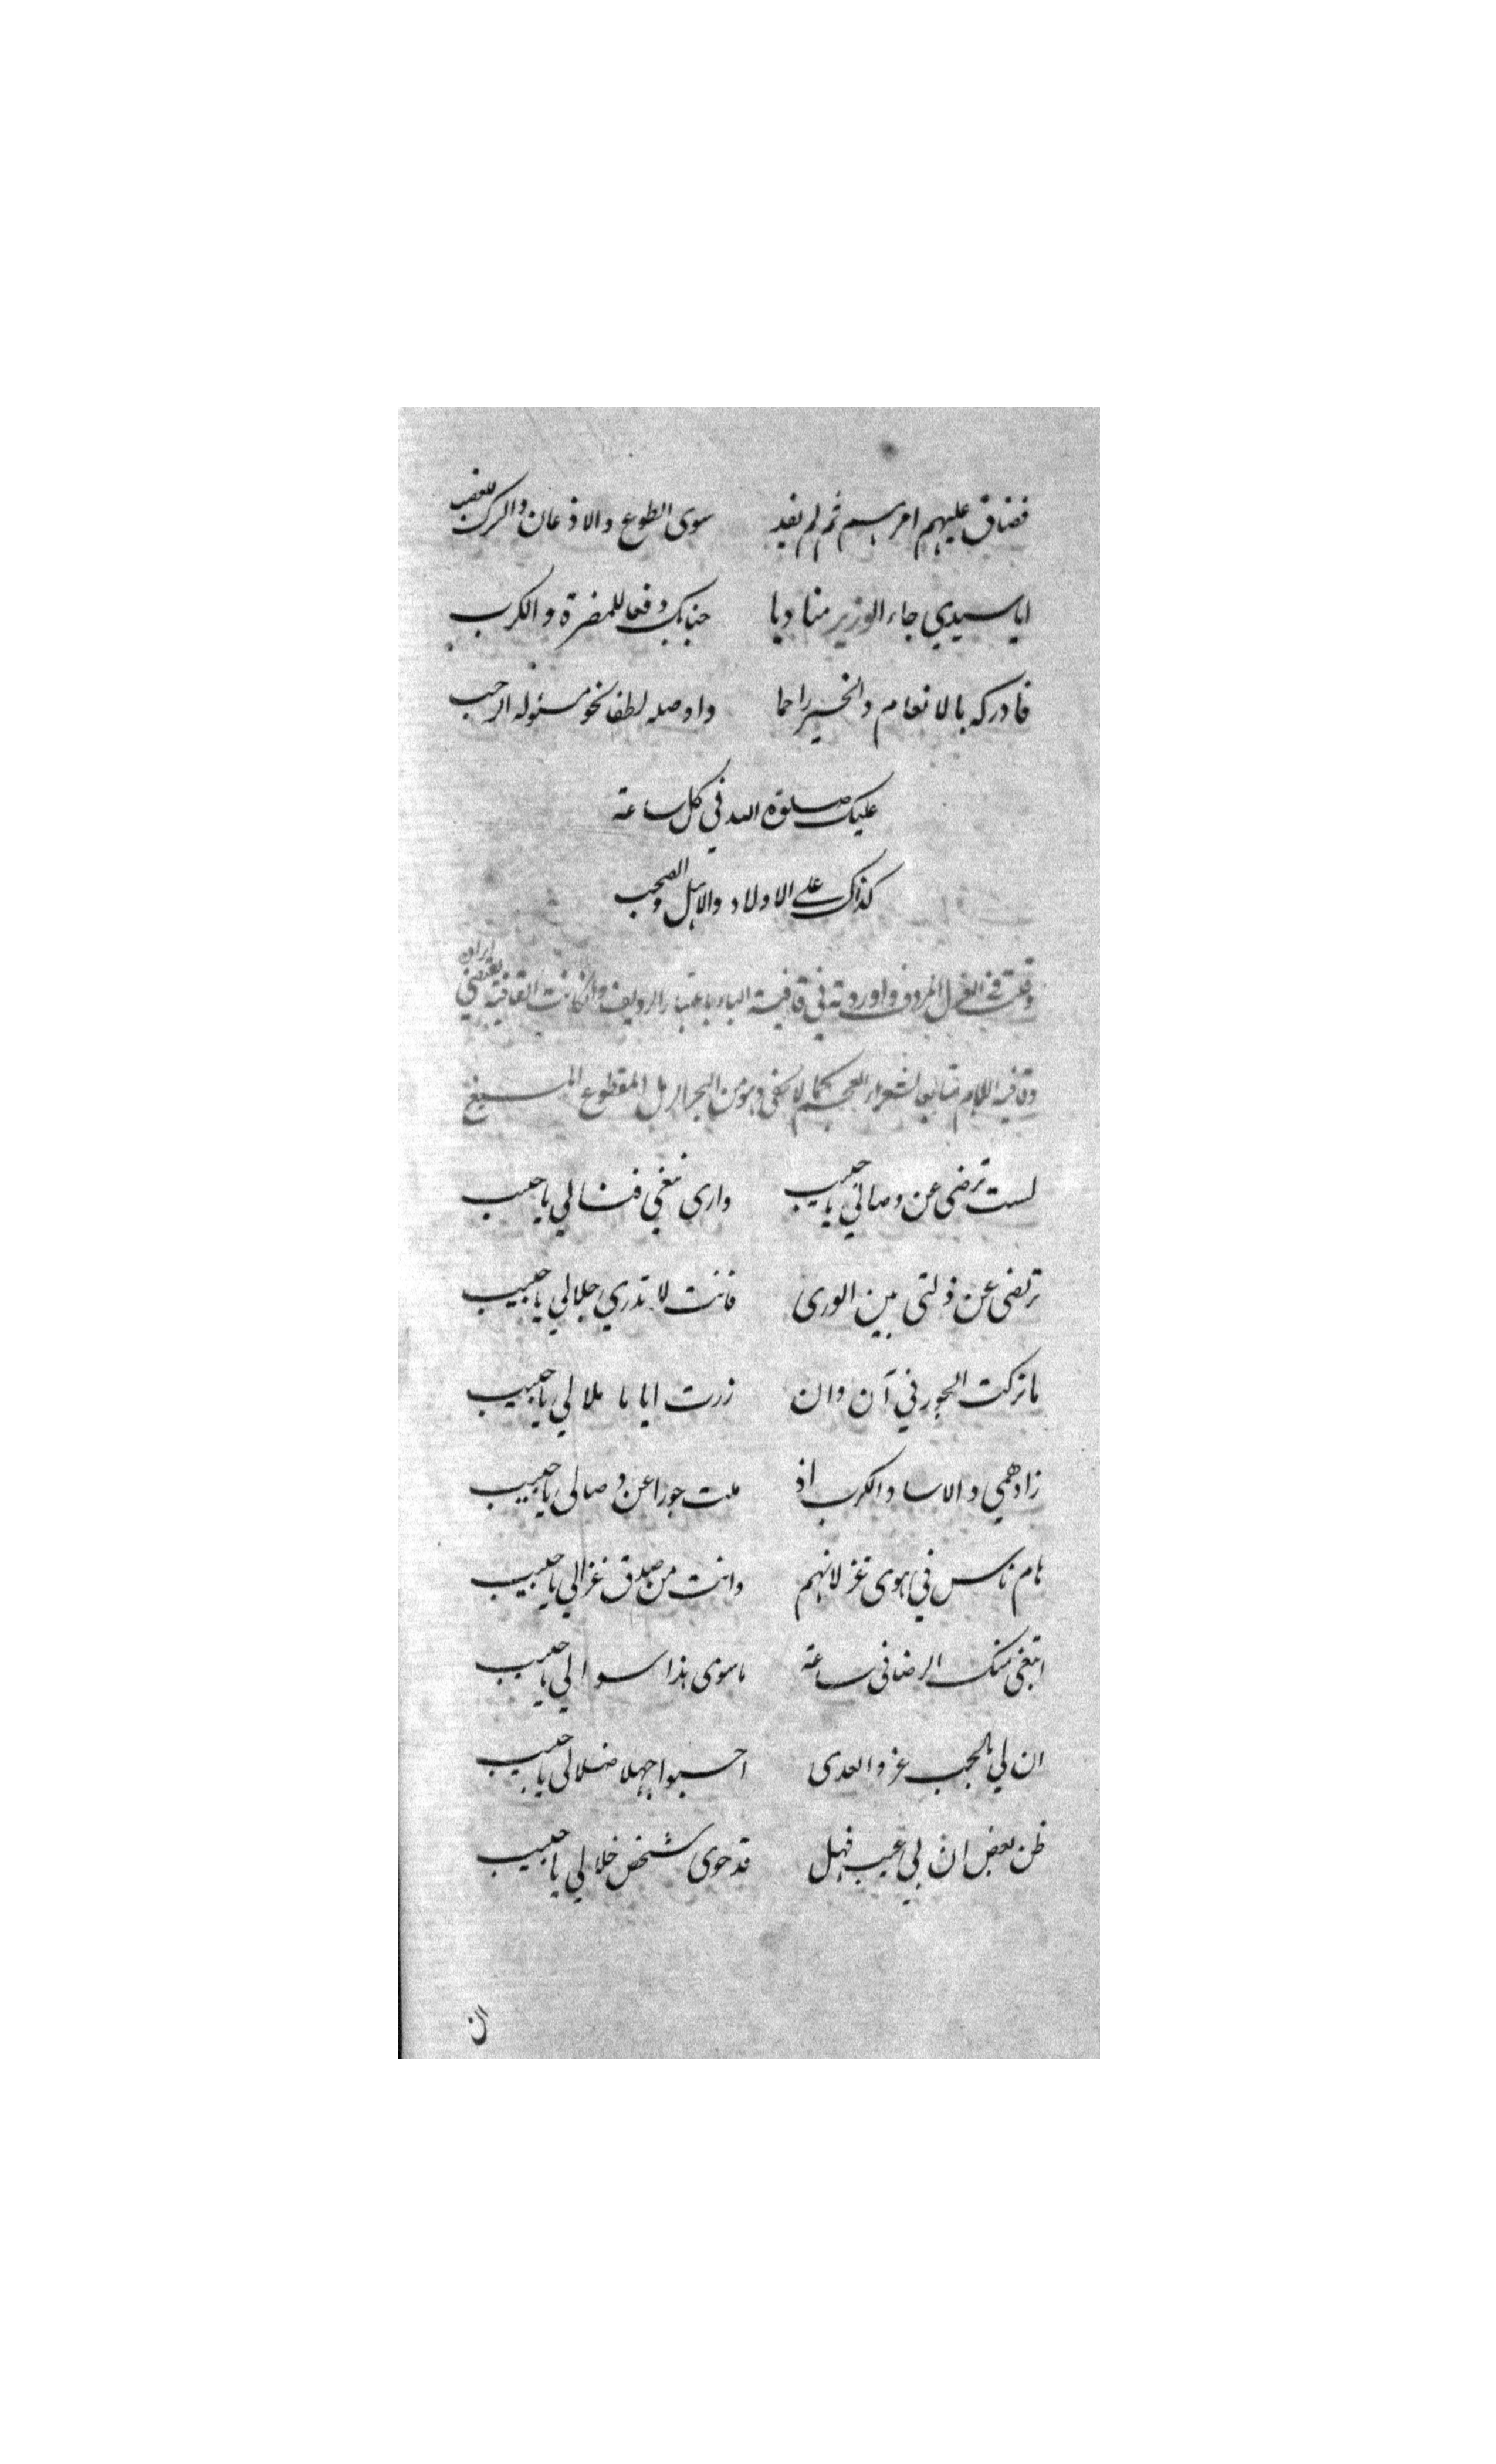 فضاق عليهم امرهم ثم لم يفد سوى الطوع والاذعان والترك للعضب
ايا سيدي جاء الوزير مناديا جنابك دفعا للمضرة والكرب
فادركه بالانعام والخير راحما واوصله لطفا نحو مسئوله الرحب
عليك صلوة الله في كل ساعة
كذاك على الاولاد والاهل والصحب
وقلت في الغزل المردف واوردته في قافية الباء باعتبار الرديف وان كانت القافية تقتضي ايراده
وقافية اللام متابعا لشعراء العجم كما لا يخفى وهو من البحر الرمل المقطوع المسبغ
لست ترضى عن وصالي يا حبيب وارى تبغي فنالي يا حبيب
ترتضى عن ذلتى بين الورى فانت لا تدري جلالي يا حبيب
ما تركت الجور في آن وان زرت اياما ملالي يا حبيب
زاد همي والاسا والكرب اذ ملت جورا عن وصالي يا حبيب
هام ناس في هوى غزلانهم وانت من صدق غزالي يا حبيب
ابتغى منك الرضا في ساعة ما سوى هذا سوالي يا حبيب
ان لي بالحب عز والعدى احسبوا جهلا ضلالي يا حبيب
ظن بعض ان لي عيب فهل قد حوى شخص خلالي يا حبيب
ان